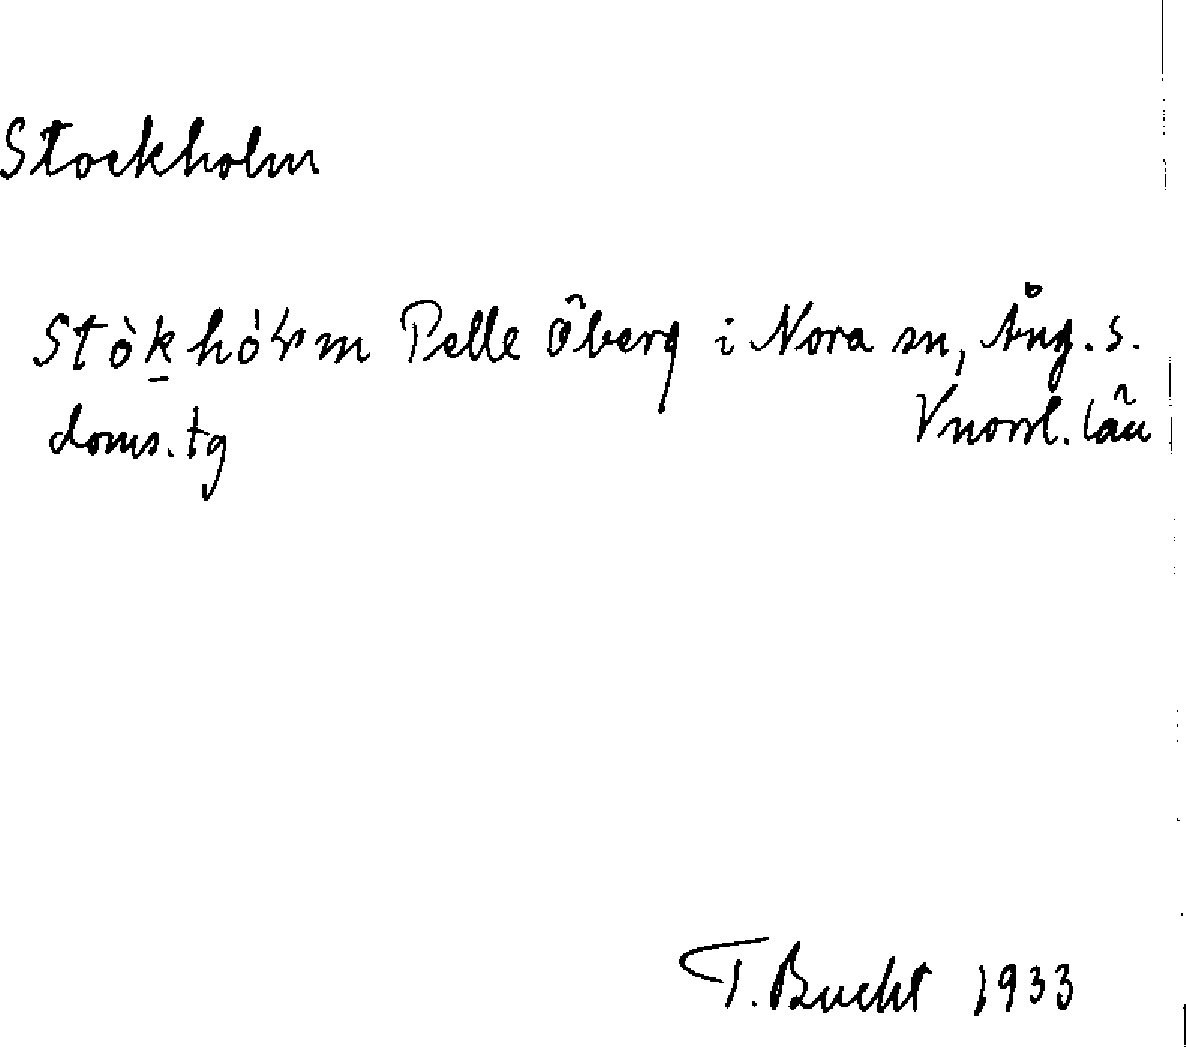 Stockholm
Stòk̠hóɽm Pelle Öberg i Nora sn, Ång. s.
doms. tg Vnorrl. län
T. Bucht 1933